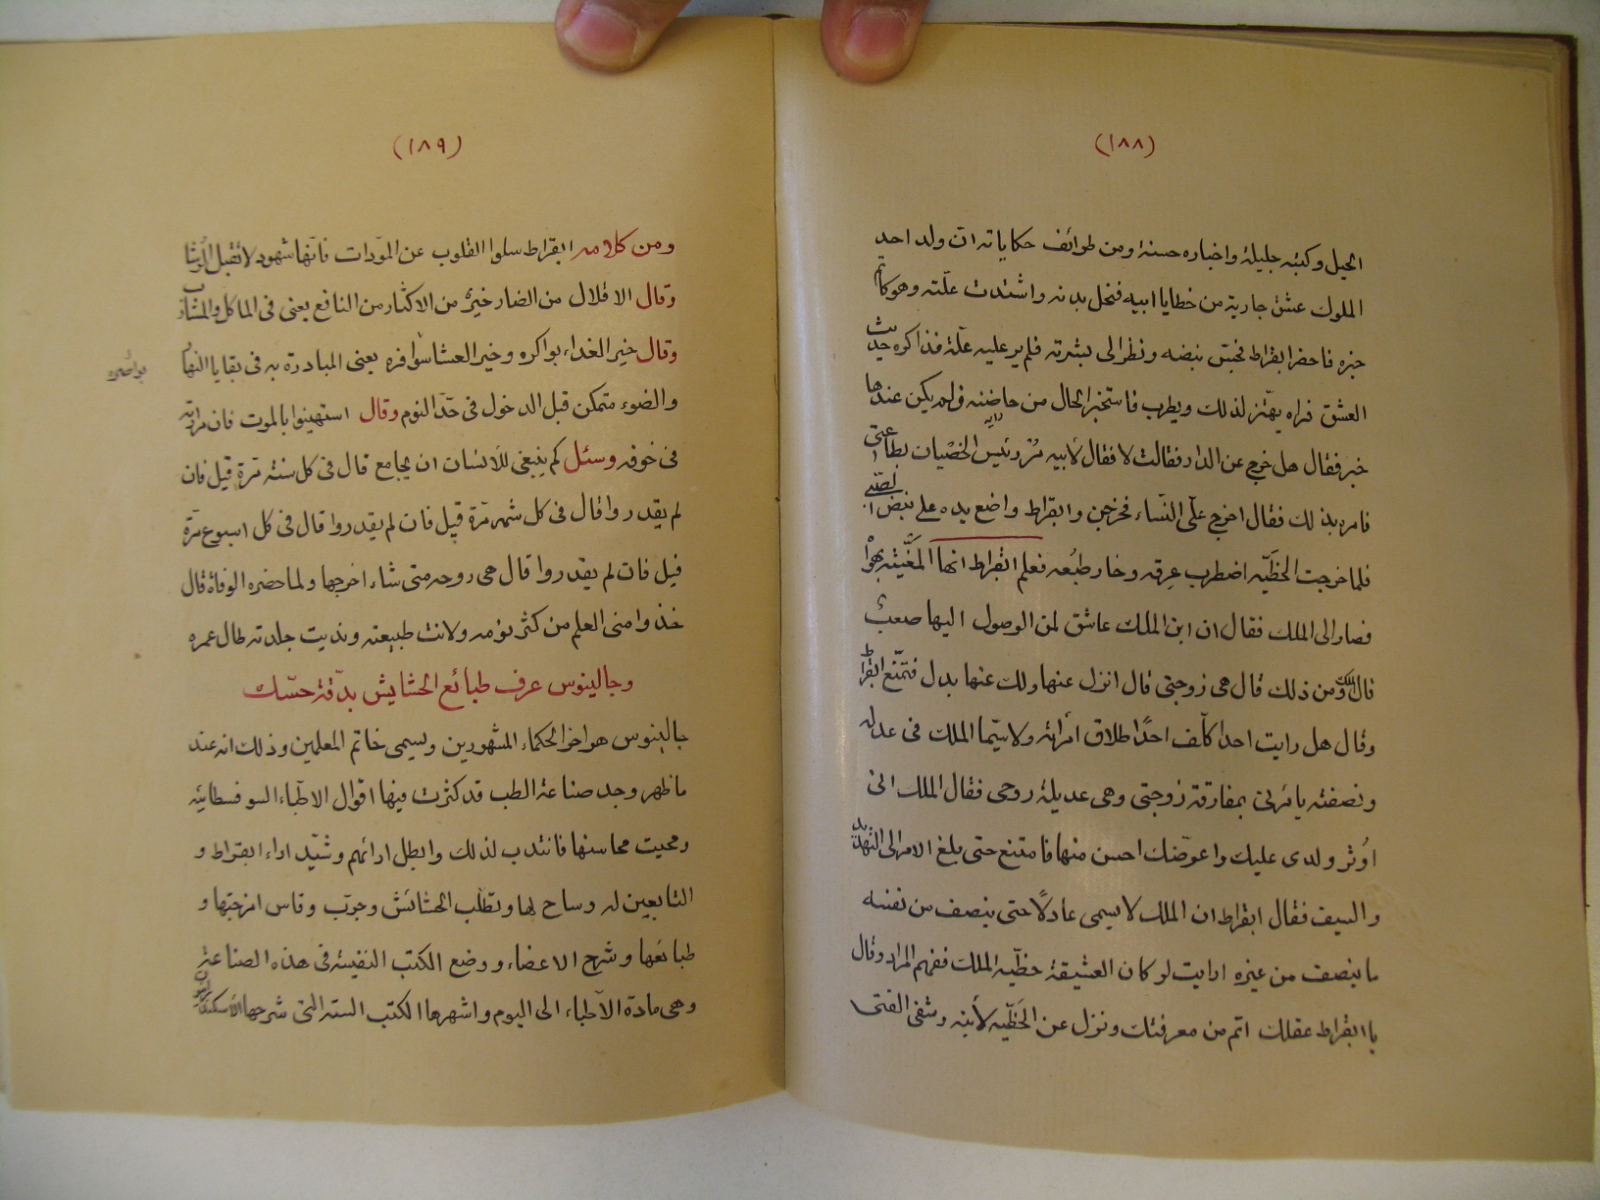 (١٨٨)
الحيل وكتبه جليلة واخباره حسنة ومن طوائف حكاياته ان ولد احد
الملوك عشق جارية من خطايا ابيه فنحل بدنه واشتدت علّته وهو كاتم
خبره فاحضر ابقراط فجسّ نبضه ونظر الى بشرته فلم ير عليه علّة فذاكره حديث
العشق فراه يهتز لذلك ويطرب فاستخبر الحال من حاضنته فلم يكن عندها
خبر فقال هل خرج عن الدار فقالت لا فقال لأبيه مُر رئيس الخصيان بطاعتى
فامره بذلك فقال اخرج علّى النّساء فخرجن وابقراط واضع يده على نبض الصّبى
فلما خرجت الحظّيه اضطرب عِرقه وحار طبعُه فعلم ابقراط انها المغنية بهواه
فصار الى الملك فقال ان ابن الملك عاشق لمن الوصول اليها صعبٌ
قال الملك ومن ذلك قال هى زوجتى قال انزل عنها ولك عنها بدل فتمنّع ابقراط
وقال هل رايت احدا كلّف احدًا طلاق امرأته ولاسيّما الملك فى عدله
ونصفته يامرنى بمفارقة زوجتى وهى عديلة روحى فقال الملك انى
اوُثر ولدى عليك واعوّضك احسن منها فامتنع حتى بلغ الامر الى التهديد
والسيف فقال ابقراط ان الملك لا يسمى عادلاً حتى ينصف من نفسه
ما ينصف من غيره ارايت لو كان العشيقة حظّيه الملك ففهم المراد وقال
يا ابقراط عقلك اتم من معرفتك ونزل عن الحَظّيه لأبنه وشفى الفتى
(١٨٩)
ومن كلامه ابقراط سلوا القلوب عن المودّات فانّها شهود لا تقبل الرُشا
وقال الاقلال من الضار خيرٌ من الاكثار من النافع يعنى فى الماكل والمشارب
وقال خير الغداء بواكره وخير العشا سوافره يعنى المبادرة به فى بقايا النهار
والضوء متمكن قبل الدخول فى حدّ النوم وقال استهينوا بالموت فان مرارته
فى خوفه وسئل كم ينبغى للانسان ان يجامع قال فى كل سنة مرّة قيل فان
لم يقدروا قال فى كل شهر مرّة قيل فان لم يقدروا قال فى كل اسبوع مرّة
قيل فان لم يقدروا قال هى روحه متى شاء اخرجها ولما حضره الوفاة قال
خذوا منى العلم من كثر نومه ولانت طبيعته ونديت جلدته طال عمره
وجالينوس عرف طبائع الحشايش بدقّة حسّك
جالينوس هو اخر الحكماء المشهورين ويسمى خاتم المعلمين وذلك انه عند
ما ظهر وجد صناعة الطب قد كثرت فيها اقوال الاطباء السوفسطايّة
ومحيت محاسنها فانتدب لذلك وابطل ارائهم وشيّد اراء ابقراط و
التابعين له وساح لها وتطلّب الحشائش وجرّب وقاس امزجتها و
طبائعها وشرح الاعضاء ووضع الكتب النفيسة فى هذه الصناعة
وهى مادة الأطباء الى اليوم واشهرها الكتب الستة التى شرحها الاسكندرانيون